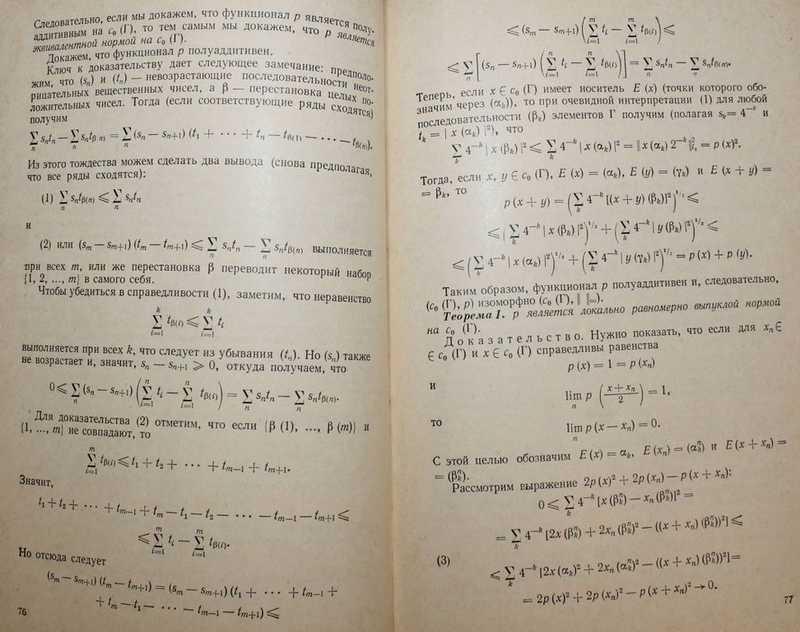 Следовательно, если мы докажем, что функционал p является полу-
аддитивным на c₀ (Γ), то тем самым мы докажем, что p является
эквивалентной нормой на c₀ (Γ).
Докажем, что функционал p полуаддитивен.
Ключ к доказательству дает следующее замечание: предполо-
жим, что (sₙ) и (tₙ) — невозрастающие последовательности неот-
рицательных вещественных чисел, а β — перестановка целых по-
ложительных чисел. Тогда (если соответствующие ряды сходятся)
получим
∑ₙ sₙtₙ — ∑ₙ sₙtβ(n) = ∑ₙ (sₙ — sₙ₊₁) (t₁ + ··· + tₙ — tβ(1) — ... — tβ(n)).
Из этого тождества можем сделать два вывода (снова предполагая,
что все ряды сходятся):
(1) ∑ₙ sₙtβ(n) ⩽ ∑ₙ sₙtₙ
и
(2) или (sₘ — sₘ₊₁) (tₘ — tₘ₊₁) ⩽ ∑ₙ sₙtₙ — ∑ₙ sₙtβ(n) выполняется
при всех m, или же перестановка β переводит некоторый набор
{1, 2, ..., m} в самого себя.
Чтобы убедиться в справедливости (1), заметим, что неравенство
∑ᵢ₌₁ᵏ tβ(i) ⩽ ∑ᵢ₌₁ᵏ tᵢ
выполняется при всех k, что следует из убывания (tₙ). Но (sₙ) также
не возрастает и, значит, sₙ — sₙ₊₁ ⩾ 0, откуда получаем, что
0 ⩽ ∑ₙ (sₙ — sₙ₊₁) (∑ᵢ₌₁ⁿ tᵢ — ∑ᵢ₌₁ⁿ tβ(i)) = ∑ₙ sₙtₙ — ∑ₙ sₙtβ(n).
Для доказательства (2) отметим, что если {β (1), ..., β (m)} и
{1, ..., m} не совпадают, то
∑ᵢ₌₁ᵐ tβ(i) ⩽ t₁ + t₂ + ··· + tₘ₋₁ + tₘ₊₁.
Значит,
t₁ + t₂ + ··· + tₘ₋₁ + tₘ — t₁ — t₂ — ··· — tₘ₋₁ — tₘ₊₁ ⩽
⩽ ∑ᵢ₌₁ᵐ tᵢ — ∑ᵢ₌₁ᵐ tβ(i).
Но отсюда следует
(sₘ — sₘ₊₁) (tₘ — tₘ₊₁) = (sₘ — sₘ₊₁) (t₁ + ··· + tₘ₋₁ +
+ tₘ — t₁ — ··· — tₘ₋₁ — tₘ₊₁) ⩽
76
⩽ (sₘ — sₘ₊₁) (∑ᵢ₌₁ᵐ tᵢ — ∑ᵢ₌₁ᵐ tβ(i)) ⩽
⩽ ∑ₙ [(sₙ — sₙ₊₁) (∑ᵢ₌₁ⁿ tᵢ — ∑ᵢ₌₁ⁿ tβ(i))] = ∑ₙ sₙtₙ — ∑ₙ sₙtβ(n).
Теперь, если x ∈ c₀ (Γ) имеет носитель E (x) (точки которого обо-
значим через (αₖ)), то при очевидной интерпретации (1) для любой
последовательности (βₖ) элементов Γ получим (полагая sₖ = 4⁻ᵏ и
tₖ = | x (αₖ) |²), что
∑ₖ 4⁻ᵏ | x (βₖ) |² ⩽ ∑ₖ 4⁻ᵏ | x (αₖ) |² = ‖x (αₖ) 2⁻ᵏ‖²ₗ₂ = p (x)².
Тогда, если x, y ∈ c₀ (Γ), E (x) = (αₖ), E (y) = (γₖ) и E (x + y) =
= βₖ, то
p (x + y) = (∑ₖ 4⁻ᵏ [(x + y) (βₖ)]²)^(1/2) ⩽
⩽ (∑ₖ 4⁻ᵏ | x (βₖ) |²)^(1/2) + (∑ₖ 4⁻ᵏ | y (βₖ) |²)^(1/2) ⩽
⩽ (∑ₖ 4⁻ᵏ | x (αₖ) |²)^(1/2) + (∑ₖ 4⁻ᵏ | y (γₖ) |²)^(1/2) = p (x) + p (y).
Таким образом, функционал p полуаддитивен и, следовательно,
(c₀ (Γ), p) изоморфно (c₀ (Γ), ‖ ‖∞).
Теорема 1. p является локально равномерно выпуклой нормой
на c₀ (Γ).
Доказательство. Нужно показать, что если для xₙ ∈
∈ c₀ (Γ) и x ∈ c₀ (Γ) справедливы равенства
p (x) = 1 = p (xₙ)
и
limₙ p ((x + xₙ)/2) = 1,
то
limₙ p (x — xₙ) = 0.
С этой целью обозначим E (x) = αₖ, E (xₙ) = (αₖⁿ) и E (x + xₙ) =
= (βₖⁿ).
Рассмотрим выражение 2p (x)² + 2p (xₙ)² — p (x + xₙ)²:
0 ⩽ ∑ₖ 4⁻ᵏ [x (βₖⁿ) — xₙ (βₖⁿ)]² =
= ∑ₖ 4⁻ᵏ [2x (βₖⁿ)² + 2xₙ (βₖⁿ)² — ((x + xₙ) (βₖⁿ))²] ⩽
(3) ⩽ ∑ₖ 4⁻ᵏ [2x (αₖ)² + 2xₙ (αₖⁿ)² — ((x + xₙ) (βₖⁿ))²] =
= 2p (x)² + 2p (xₙ)² — p (x + xₙ)² → 0.
77